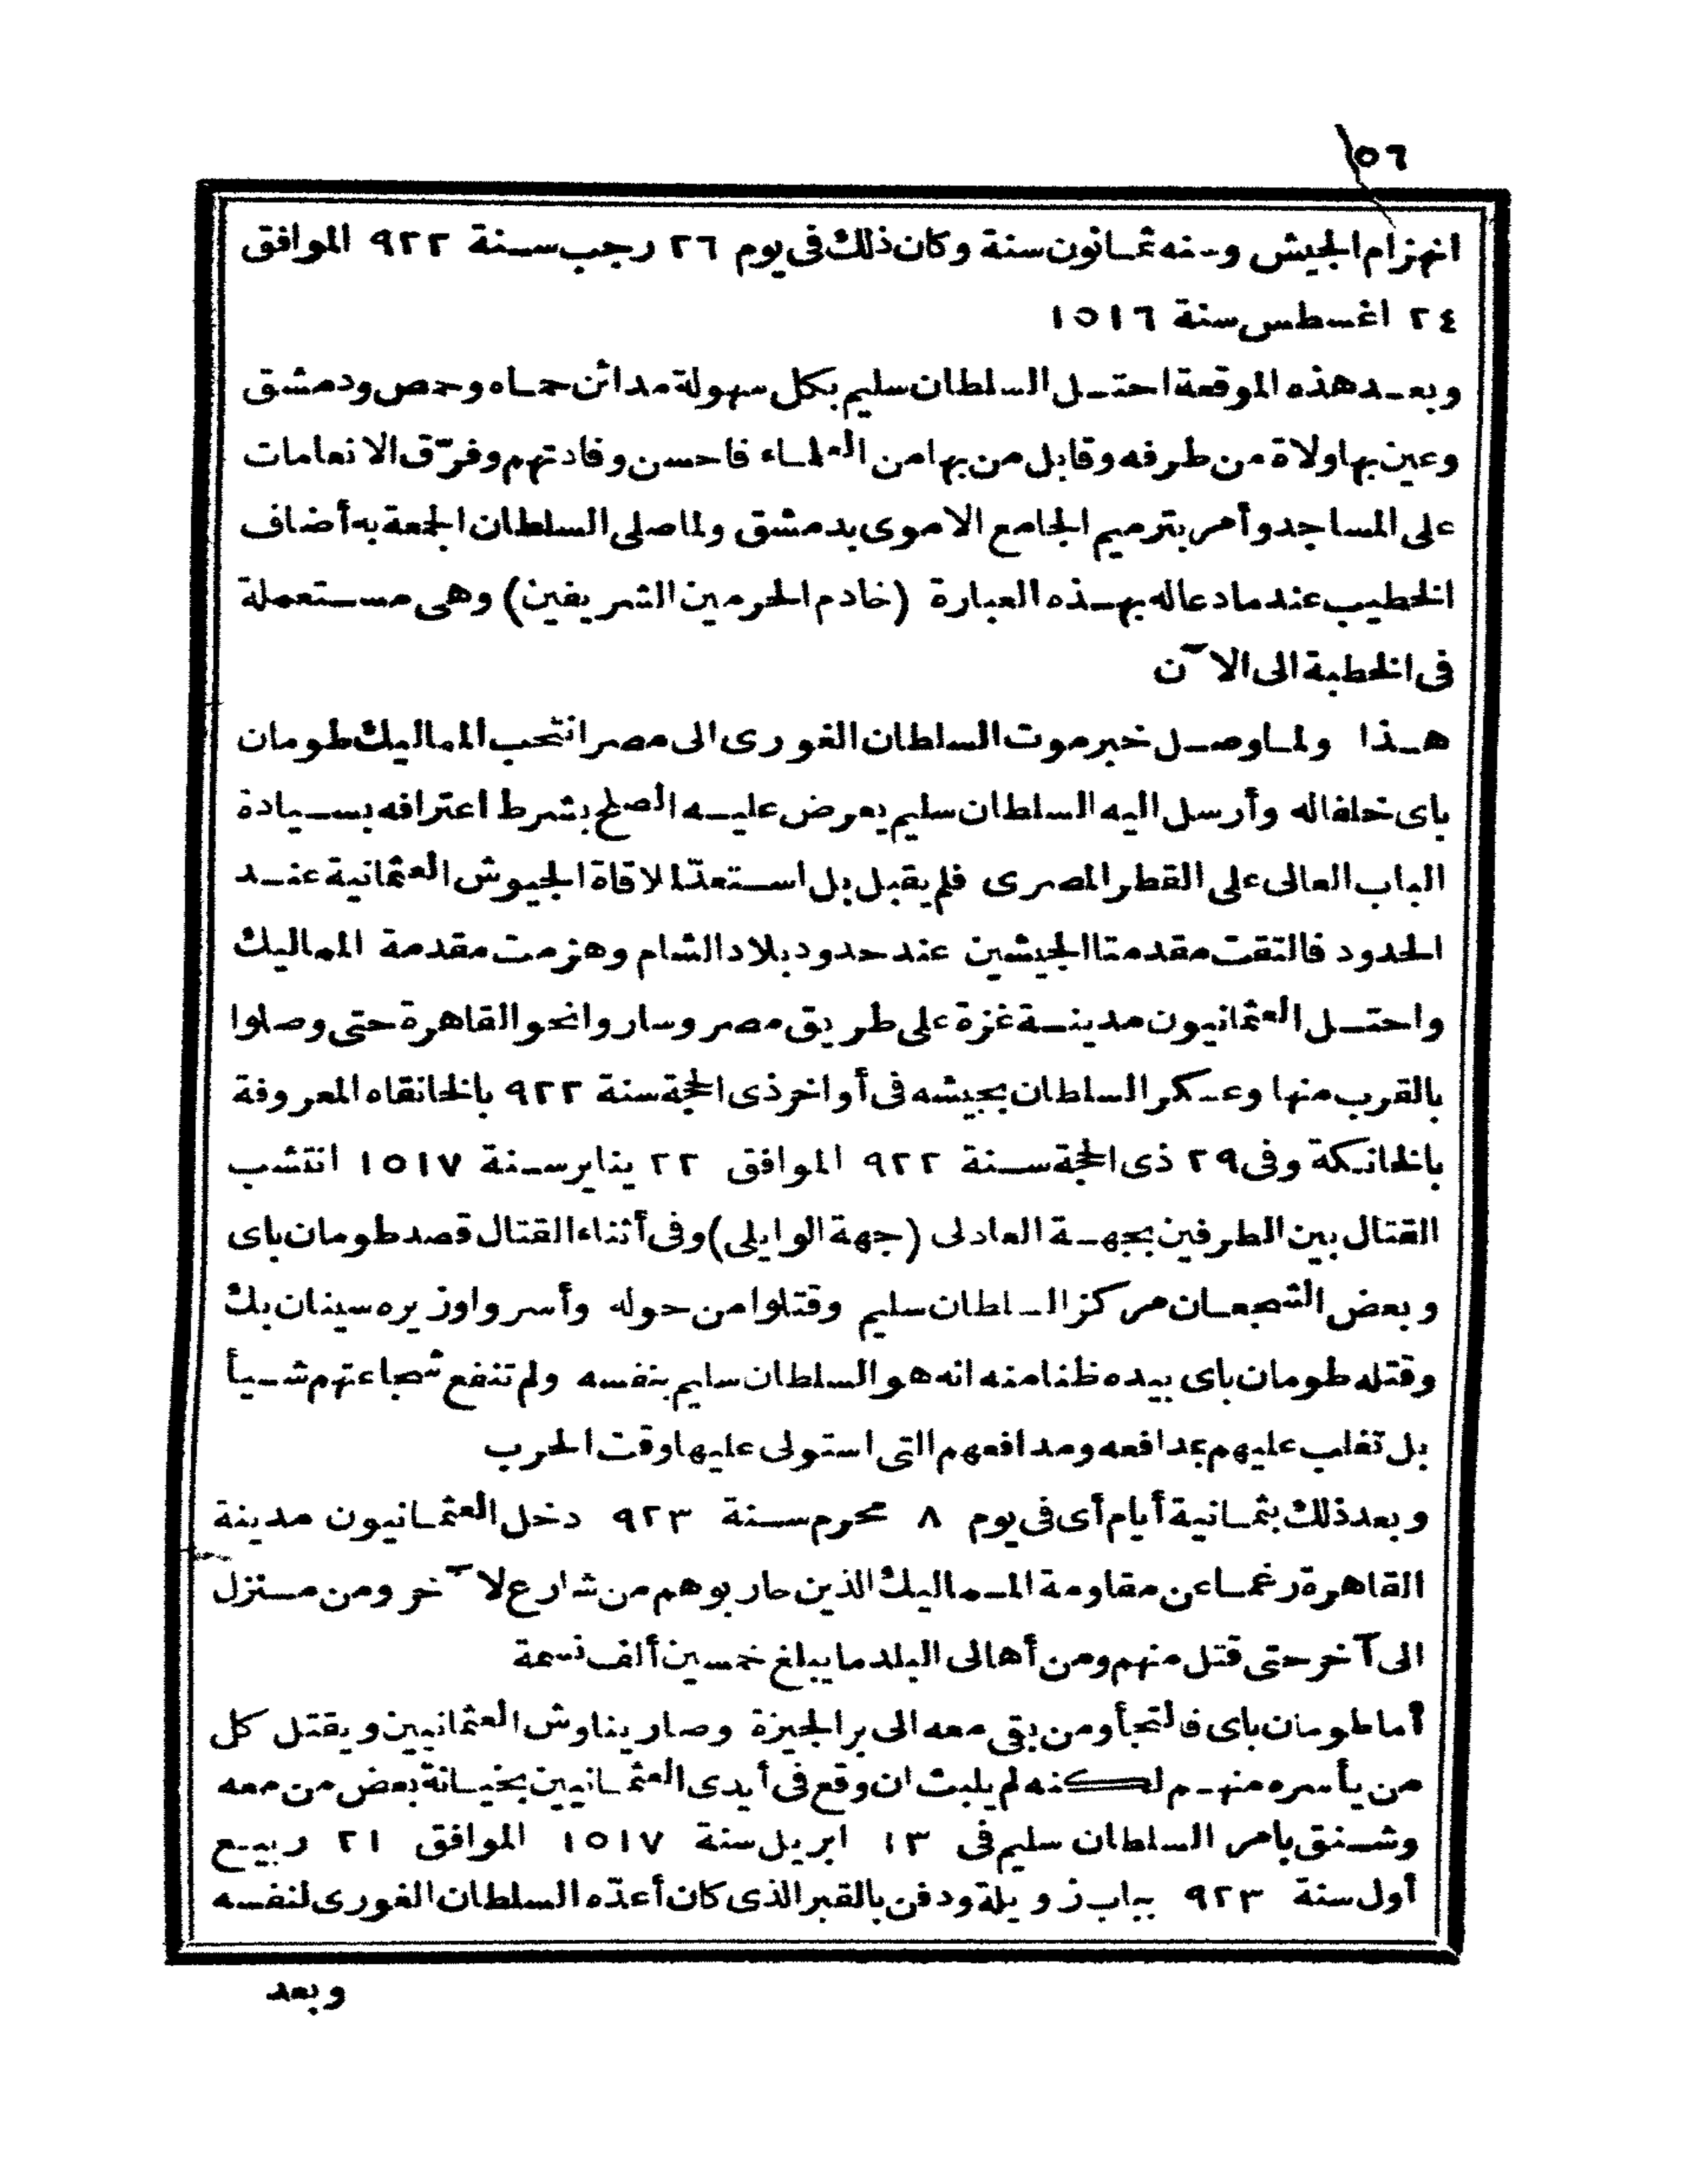 ٥٦
انهزام الجيش وسنه ثمانون سنة وكان ذلك فى يوم ٢٦ رجب سنة ٩٢٢ الموافق
٢٤ اغسطس سنة ١٥١٦
وبعد هذه الموقعة احتل السلطان سليم بكل سهولة مدائن حماه وحمص ودمشق
وعين بها ولاة من طرفه وقابل من بها من العلماء فاحسن وفادتهم وفرّق الانعامات
على المساجد وأمر بترميم الجامع الاموى بدمشق ولما صلى السلطان الجمعة به أضاف
الخطيب عند ما دعا له بهذه العبارة (خادم الحرمين الشريفين) وهى مستعملة
فى الخطبة الى الآن
هذا ولما وصل خبر موت السلطان الغورى الى مصر انتخب المماليك طومان
باى خلفا له وأرسل اليه السلطان سليم يعرض عليه الصلح بشرط اعترافه بسيادة
الباب العالى على القطر المصرى فلم يقبل بل استعدّ لملاقاة الجيوش العثمانية عند
الحدود فالتقت مقدمتا الجيشين عند حدود بلاد الشام وهزمت مقدمة المماليك
واحتل العثمانيون مدينة غزة على طريق مصر وساروا نحو القاهرة حتى وصلوا
بالقرب منها وعسكر السلطان بجيشه فى أواخر ذى الحجة سنة ٩٢٢ بالخانقاه المعروفة
بالخانكة وفى ٢٩ ذى الحجة سنة ٩٢٢ الموافق ٢٢ يناير سنة ١٥١٧ انتشب
القتال بين الطرفين بجهة العادلى (جهة الوايلى) وفى أثناء القتال قصد طومان باى
وبعض الشجعان مركز السلطان سليم وقتلوا من حوله وأسروا وزيره سينان بك
وقتله طومان باى بيده ظنا منه انه هو السلطان سليم بنفسه ولم تنفع شجاعتهم شيأ
بل تغلب عليهم بمدافعه ومدافعهم التى استولى عليها وقت الحرب
وبعد ذلك بثمانية أيام أى فى يوم ٨ محرم سنة ٩٢٣ دخل العثمانيون مدينة
القاهرة رغما عن مقاومة المماليك الذين حاربوهم من شارع لآخر ومن منزل
الى آخر حتى قتل منهم ومن أهالى البلد ما يبلغ خمسين ألف نسمة
أما طومان باى فالتجأ ومن بقى معه الى بر الجيزة وصار يناوش العثمانيين ويقتل كل
من يأسره منهم لكنه لم يلبث ان وقع فى أيدى العثمانيين بخيانة بعض من معه
وشنق بامر السلطان سليم فى ١٣ ابريل سنة ١٥١٧ الموافق ٢١ ربيع
أول سنة ٩٢٣ بباب زويلة ودفن بالقبر الذى كان أعدّه السلطان الغورى لنفسه
وبعد